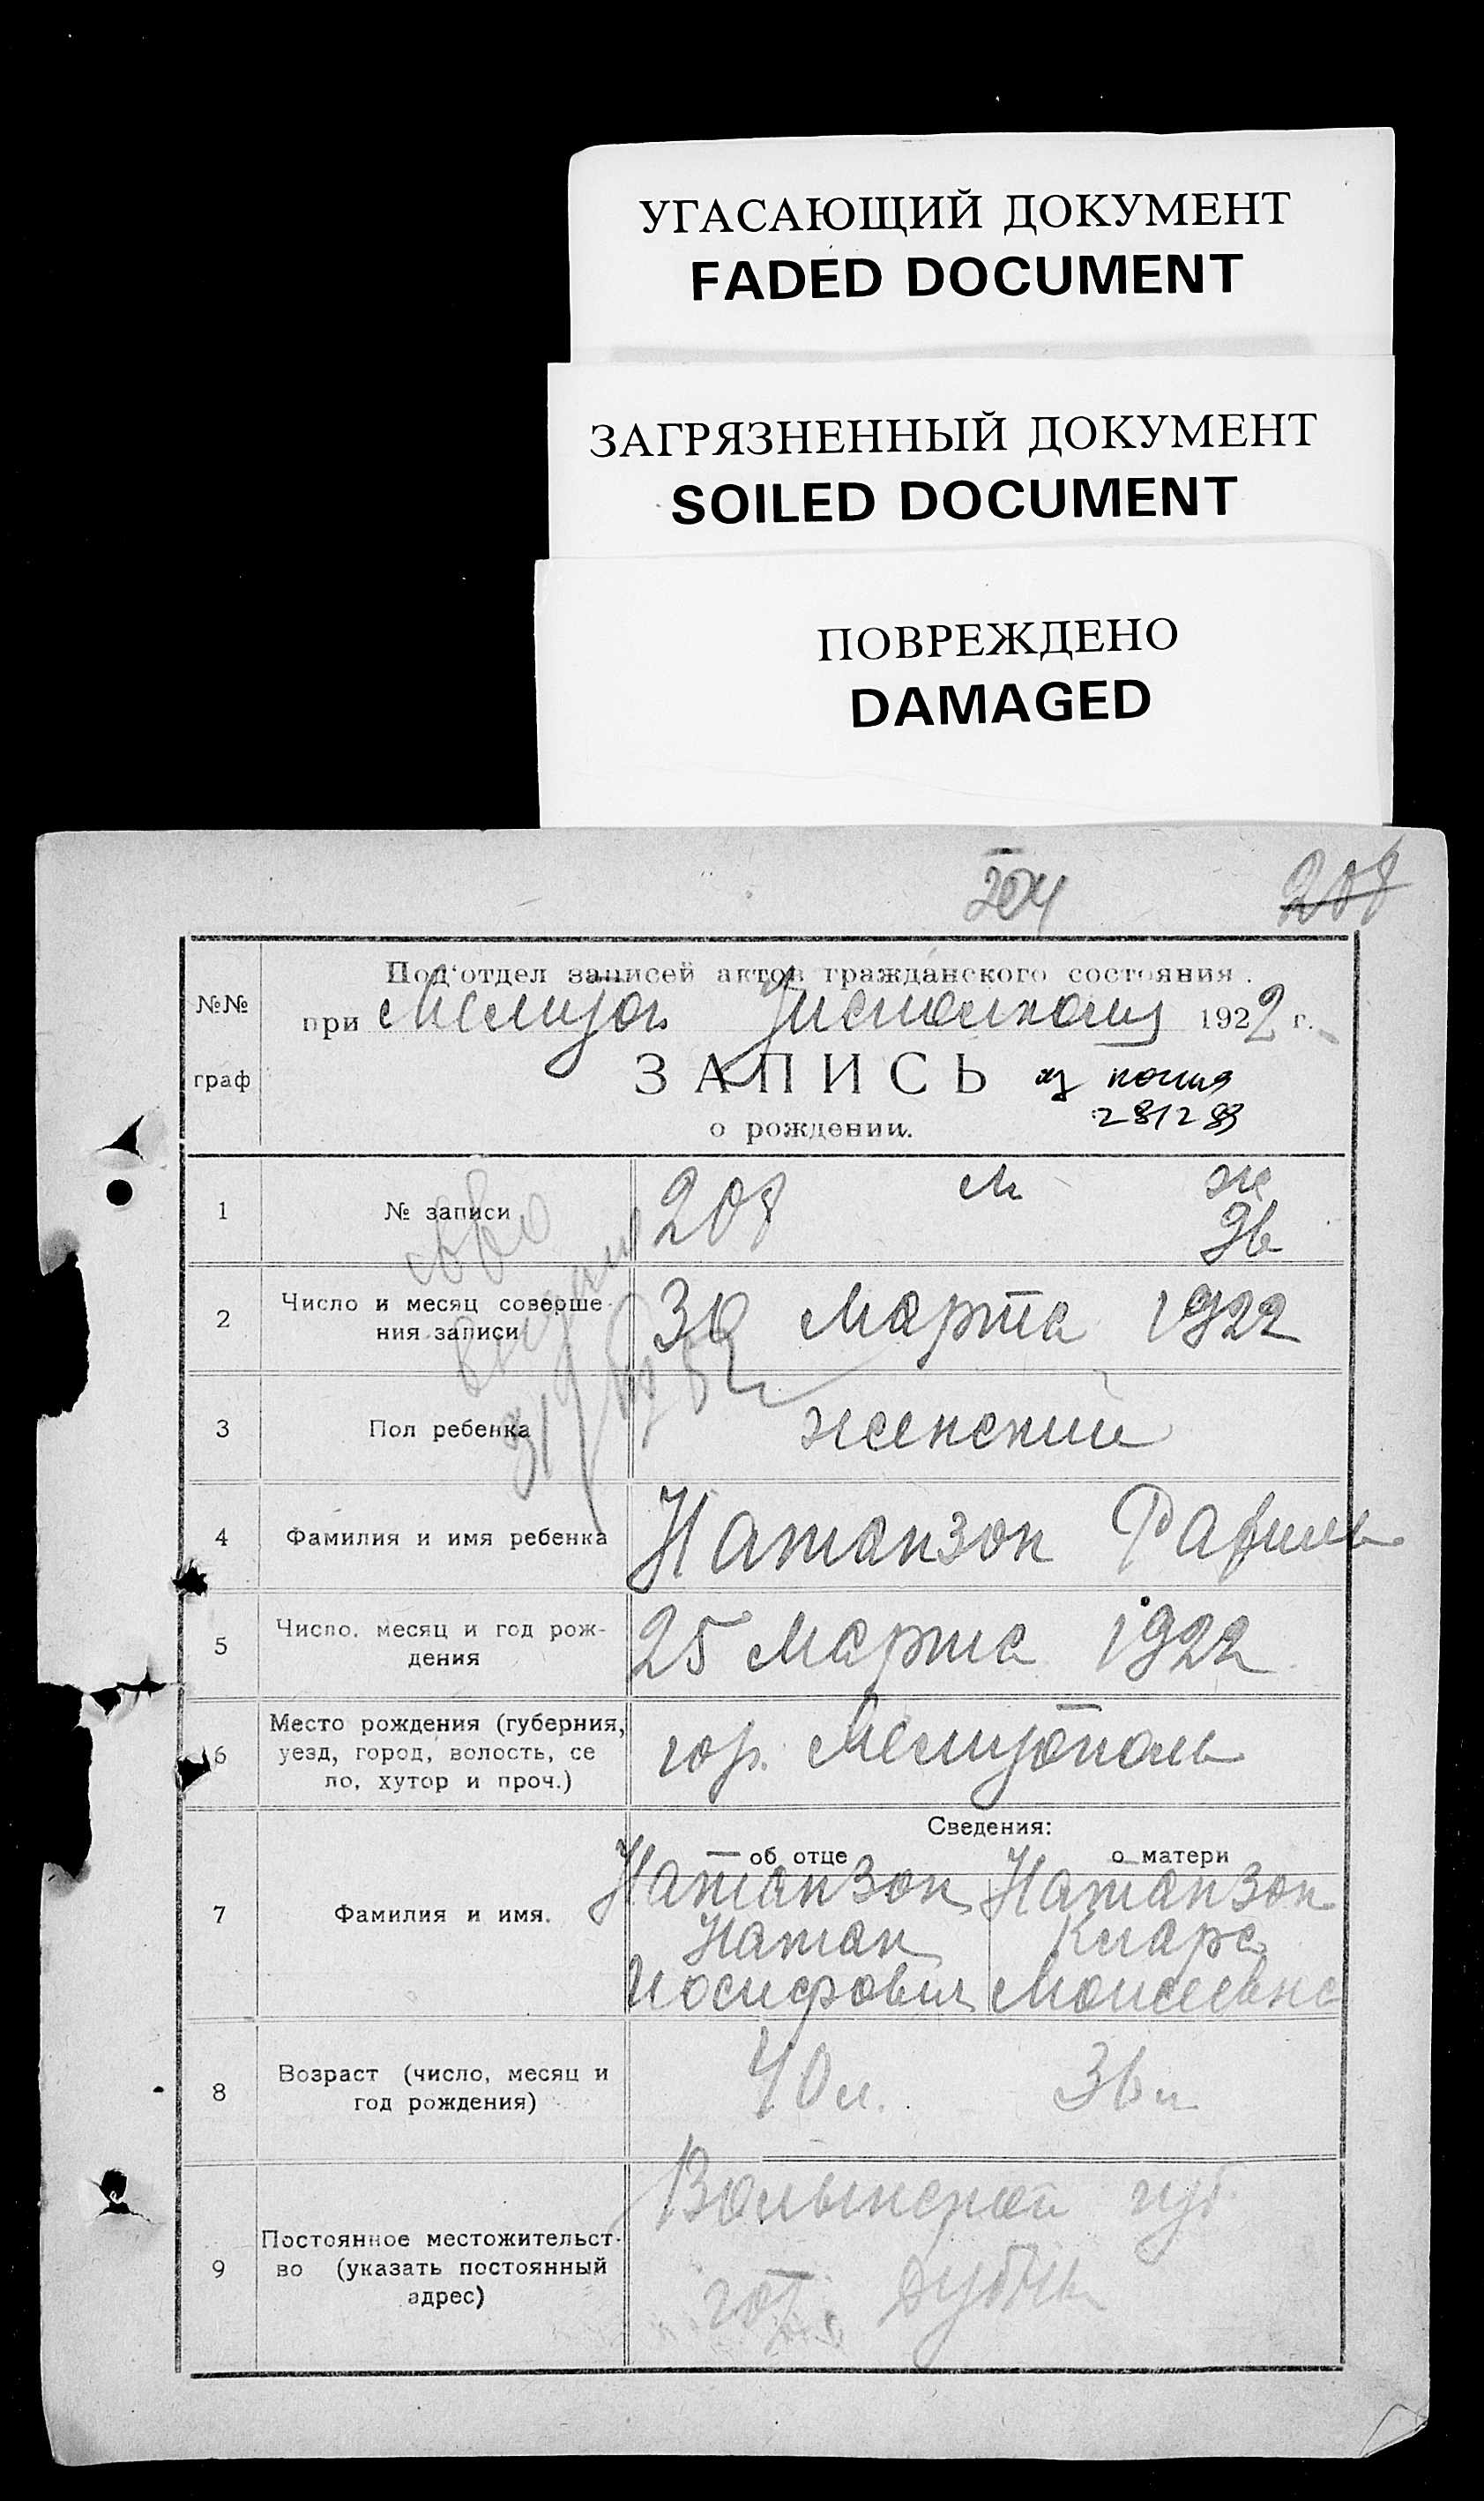 УГАСАЮЩИЙ ДОКУМЕНТ
FADED DOCUMENT
ЗАГРЯЗНЕННЫЙ ДОКУМЕНТ
SOILED DOCUMENT
ПОВРЕЖДЕНО
DAMAGED
204 208
№№ граф
Под'отдел записей актов гражданского состояния.
при Мелитоп. Уисполкоме 1922 г.
ЗАПИСЬ
копия
о рождении.
1 № записи 208 м ж
2 Число и месяц соверше-
ния записи 30 Марта 1922
3 Пол ребенка женский
4 Фамилия и имя ребенка Натанзон Рафиль
5 Число, месяц и год рож-
дения 25 Марта 1922
6 Место рождения (губерния,
уезд, город, волость, се
ло, хутор и проч.) гор. Мелитополь
Сведения:
об отце о матери
7 Фамилия и имя. Натанзон Натанзон
Натан Клара
Иосифович Моисеевна
8 Возраст (число, месяц и
год рождения) 40 л. 36 л
9 Постоянное местожительст-
во (указать постоянный
адрес) Волынской губ.
гор. Дубны